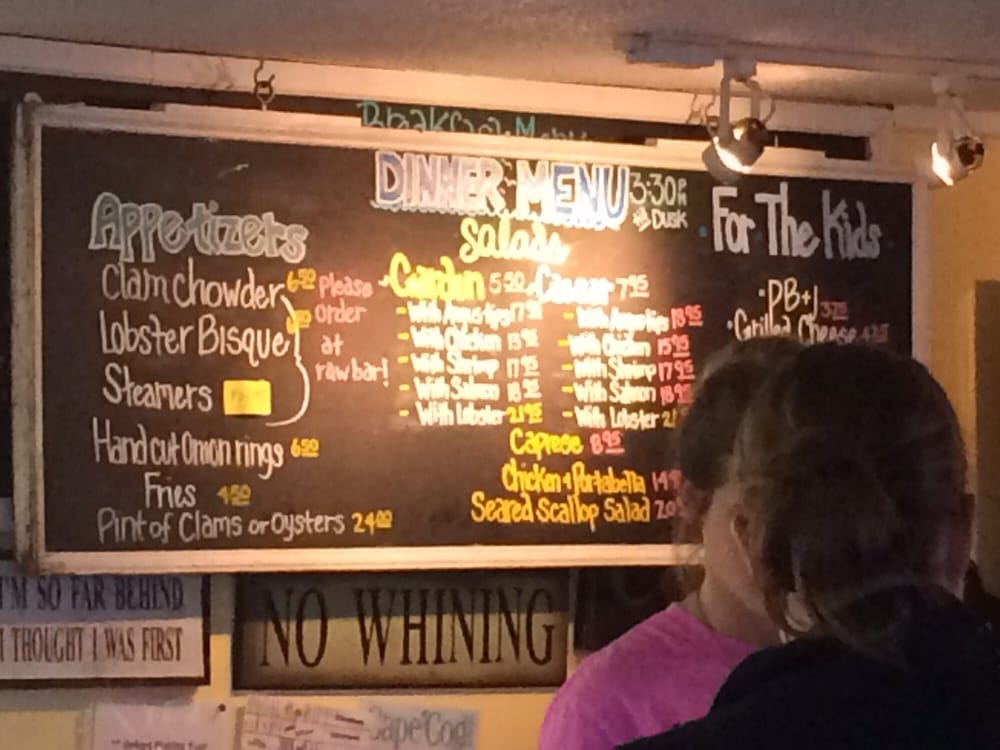 Breakfast Menu
DINNER MENU 3:30PM
Dusk
Appetizers
Clam Chowder 6.50
Lobster Bisque
Steamers
Please
order
at
raw bar!
Hand cut Onion rings 6.50
Fries 4.50
Pint of Clams or Oysters 24.00
Salads
Garden 5.50
- With 17.95
- With Chicken
- With Shrimp 17.95
- With Salmon 18.95
- With Lobster 21.95
Caesar 7.95
- With
- With Chicken 15.95
- With Shrimp 17.95
- With Salmon
- With Lobster
Caprese 8.95
Chicken + Portabella
Seared Scallop Salad
For The Kids
• PB+J
• Grilled Cheese
I'M SO FAR BEHIND
I THOUGHT I WAS FIRST
NO WHINING
Cape Cod